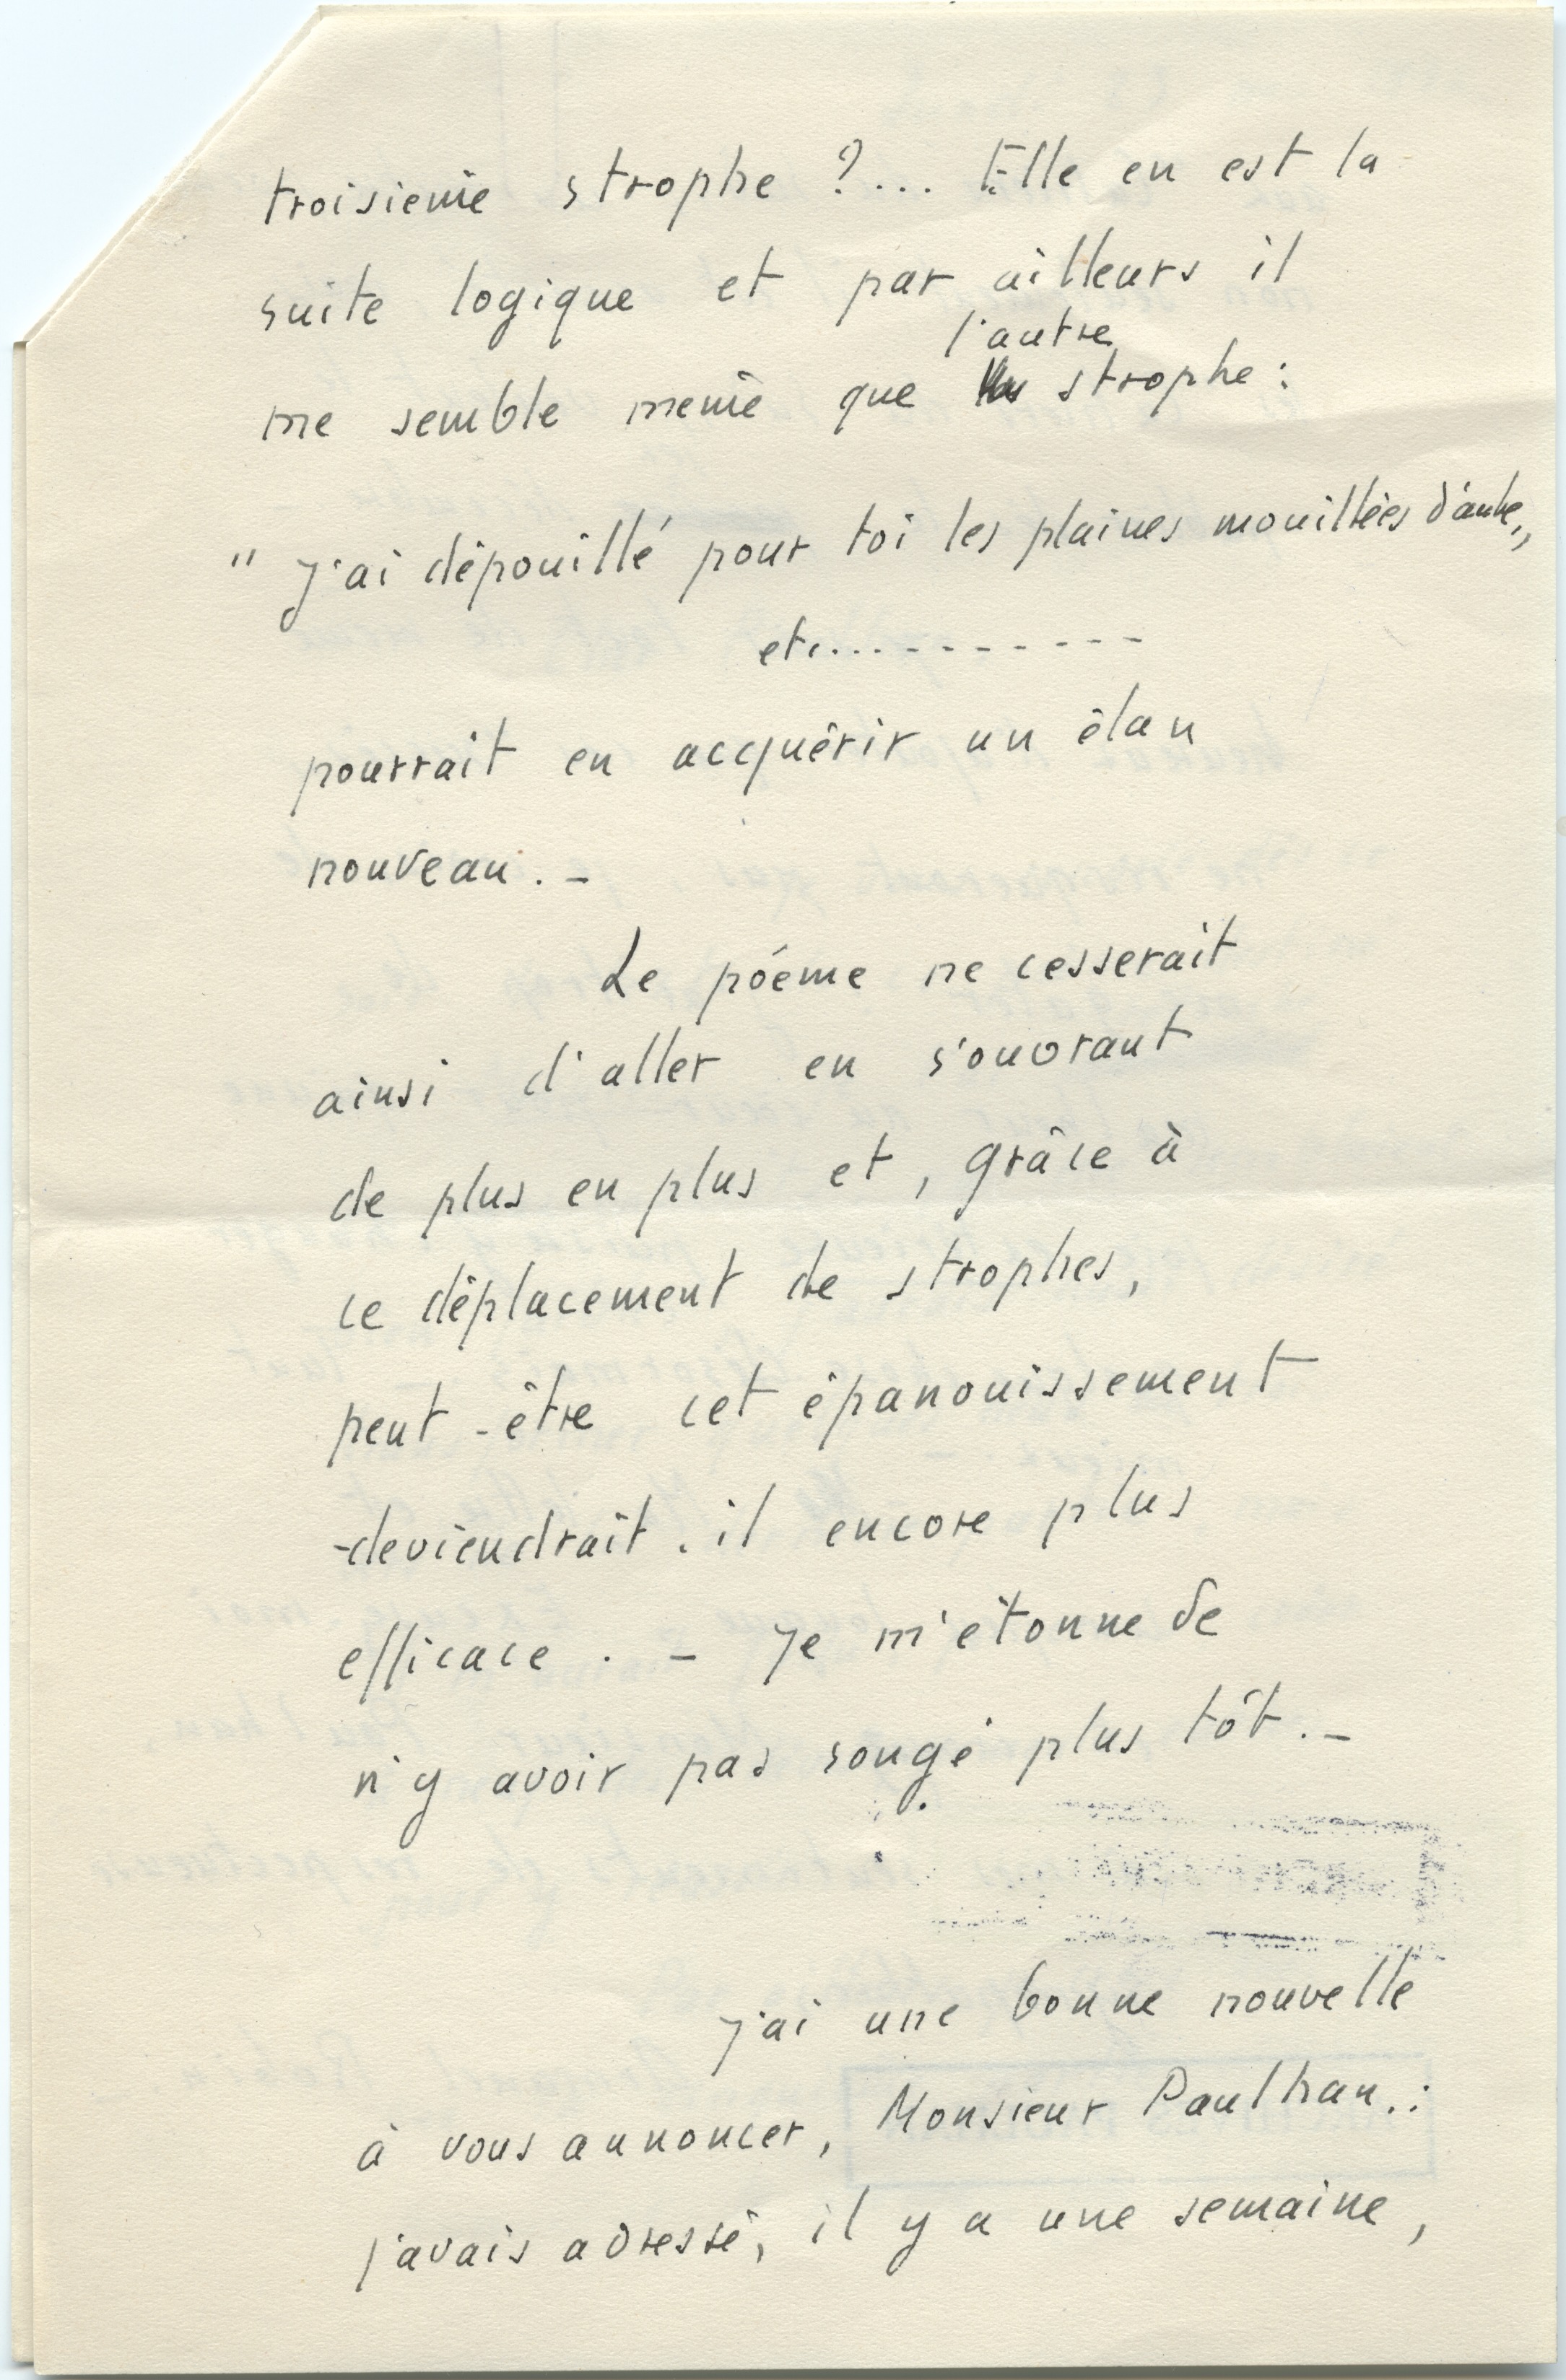 troisième strophe ?... Elle en est la
suite logique et par ailleurs il
l'autre
me semble même que strophe :
" J'ai dépouillé pour toi les plaines mouillées d'aube,,
etc..........
pourrait en acquérir un élan
nouveau . –
Le poéme ne cesserait
ainsi d'aller en s'ouvrant
de plus en plus et, grâce à
ce déplacement de strophes,
peut-être cet épanouissement
-deviendrait-il encore plus
efficace . – Je m'étonne de
n'y avoir pas songé plus tôt . –
J'ai une bonne nouvelle
à vous annoncer, Monsieur Paulhan. :
j'avais adressé, il y a une semaine,